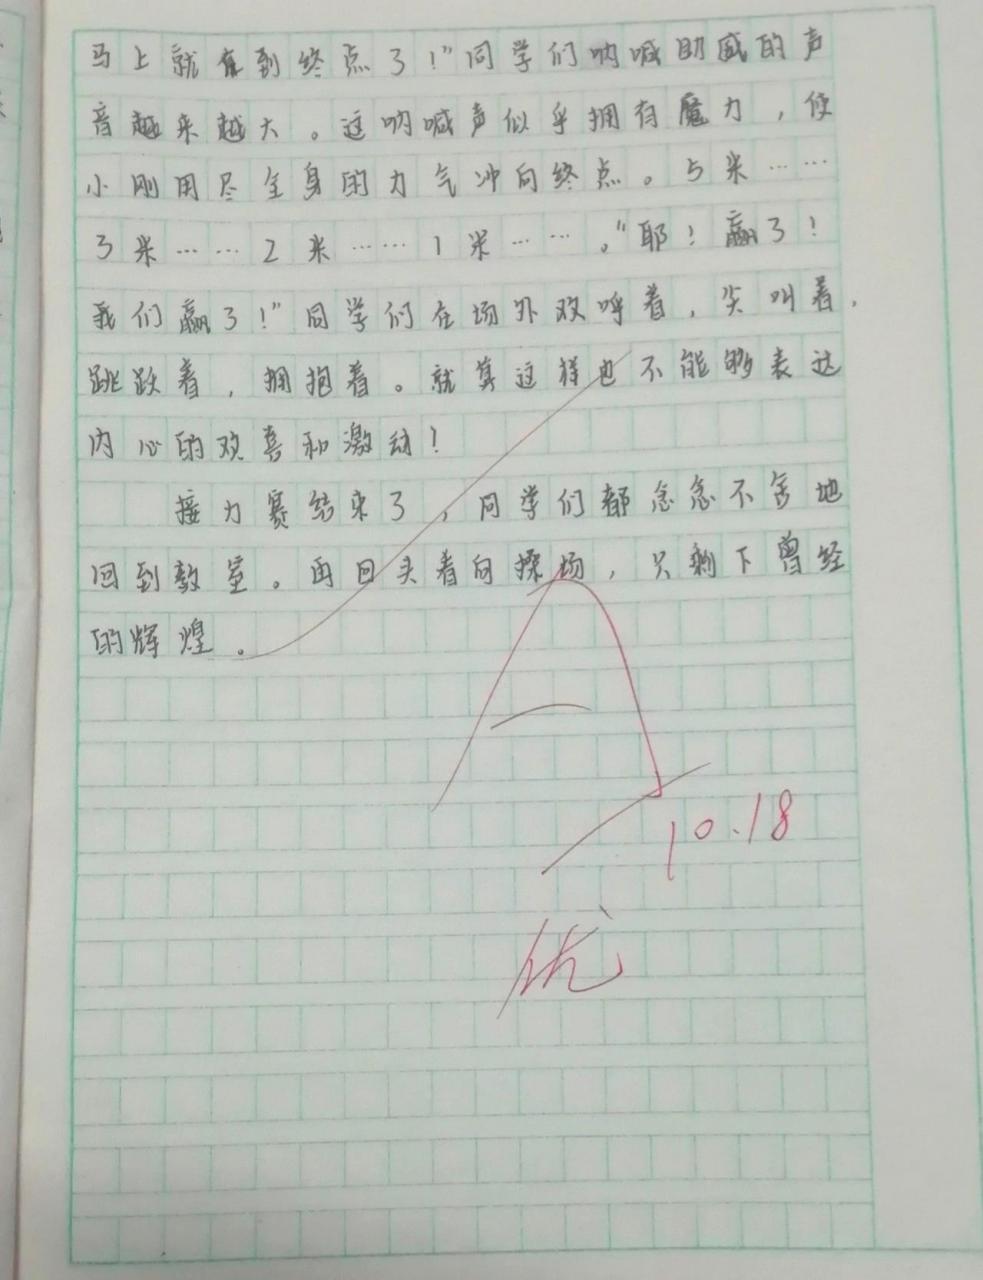 马上就有到终点了！”同学们呐喊助威的声
音越来越大。这呐喊声似乎拥有魔力，使
小刚用尽全身的力气冲向终点。5米……
3米……2米……1米……。“耶！赢了！
我们赢了！”同学们在场外欢呼着，尖叫着，
跳跃着，拥抱着。就算这样也不能够表达
内心的欢喜和激动！
接力赛结束了，同学们都念念不舍地
回到教室。再回头看向操场，只剩下曾经
的辉煌。
A
10.18
优